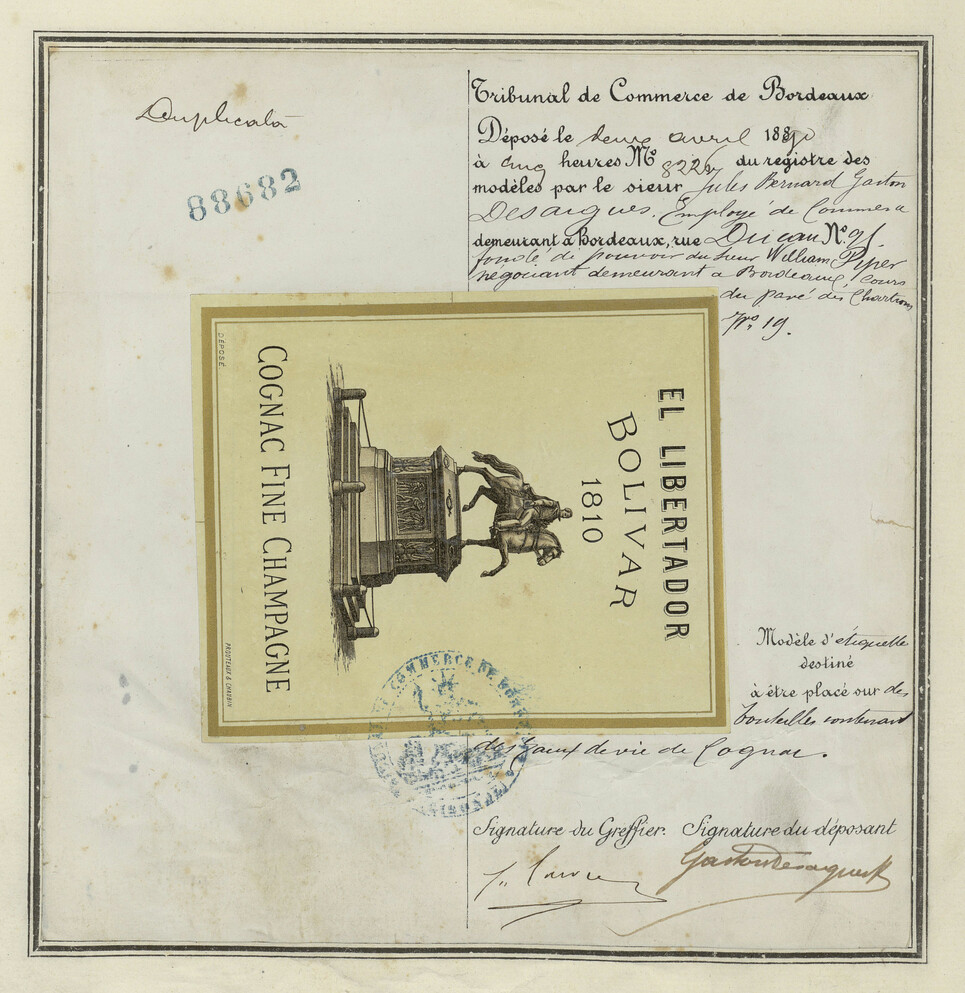 Duplicata
88682
Tribunal de Commerce de Bordeaux
Déposé le deux avril 1890
à cinq heures No 8226 du registre des
modèles par le sieur Jules Bernard Gaston
Desaigues. Employé de Commerce
demeurant à Bordeaux, rue Ducau No 91.
fondé de pouvoir du sieur William Piper
négociant demeurant à Bordeaux, cours
du pavé des Chartrons
No 19.
EL LIBERTADOR
BOLIVAR
1810
COGNAC FINE CHAMPAGNE
DÉPOSÉ
PROUTEAUX & CHARBIN
Modèle d'étiquette
destiné
à être placé sur des
bouteilles contenant
des eaux de vie de Cognac.
COMMERCE DE BORDEAUX
Signature du Greffier. Signature du déposant